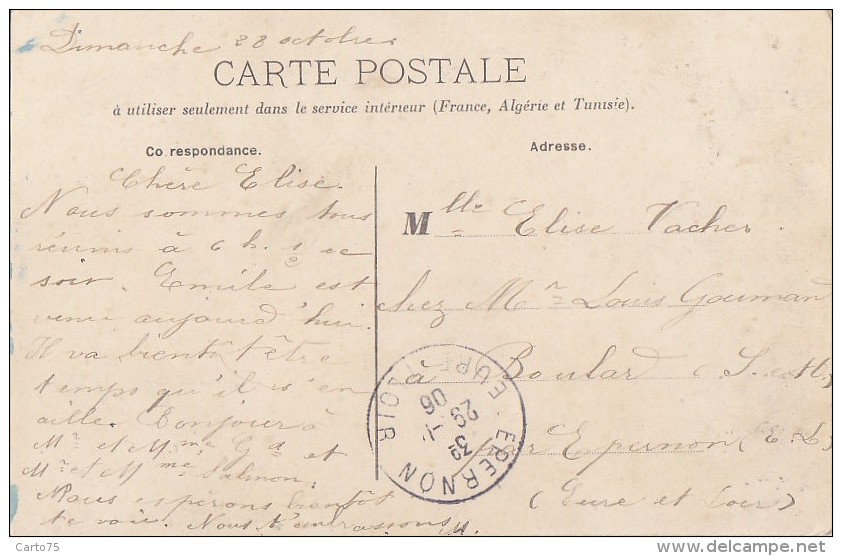 Dimanche 28 octobre
CARTE POSTALE
à utiliser seulement dans le service intérieur (France, Algérie et Tunisie).
Co respondance.
Adresse.
Chère Elise.
Nous sommes tous
réunis à 6 h. ce
soir. Emile est
venu aujourd'hui.
Il va bientôt être
temps qu'il s'en
aille. Bonjour à
Mr et Mme Gd et
Mr et Mme Salmon.
Nous espérons bientôt
te voir. Nous t'embrassons
M.
Mlle Elise Vacher
chez Mr Louis Goumand
à Boulard (S. et
par Epernon (E. L)
(Eure et Loir)
EPERNON
EURE ET LOIR
29
06
Carto75
www.delcampe.net